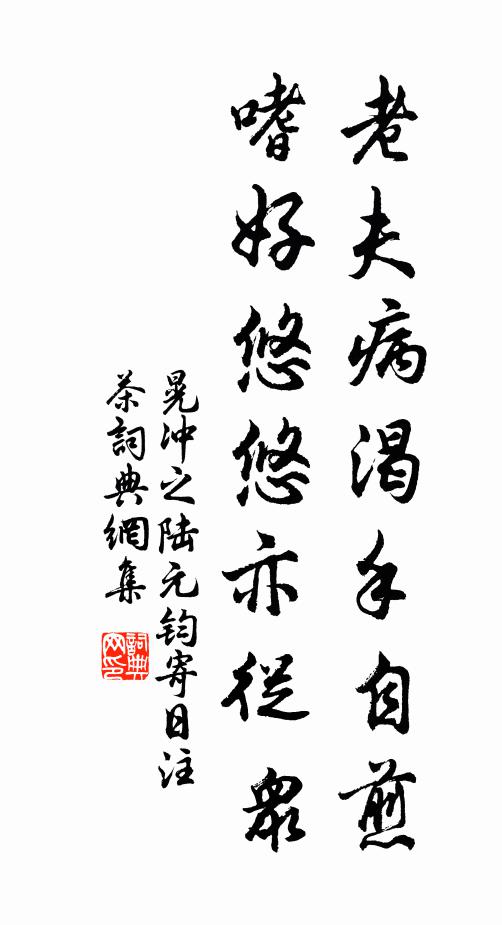 老夫病渴手自煎
嗜好悠悠亦從眾
晁沖之陸元鈞寄日注
茶詞典網集
詞典
网印